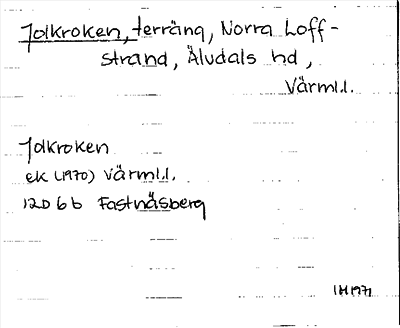 Jolkroken, terräng, Norra Loff-
strand, Älvdals hd,
Värml.l.
Jolkroken
ek (1970) Värml.l.
12D 6 b Fastnäsberg
IH 1971